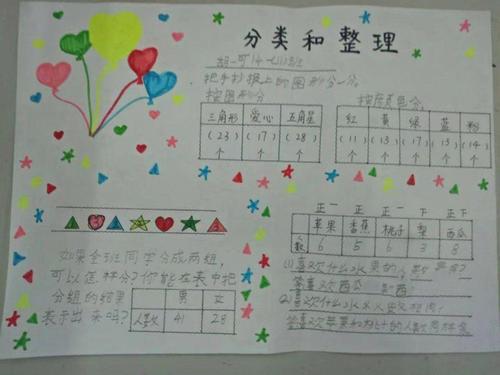 分类和整理
把手抄报上的图形分一分。
按图形分
三角形 爱心 五角星
(23)个 (17)个 (28)个
按颜色分
红 黄 绿 蓝 粉
(11)个 (13)个 (17)个 (13)个 (14)个
如果全班同学分成两组,
可以怎样分?你能在表中把
分组的结果
表示出来吗?
男 女
人数 41 28
正一 正 正一 下 正下
苹果 香蕉 桃子 梨 西瓜
数 6 5 6 3 8
(1)喜欢什么水果的人
答喜欢西瓜
(2)喜欢什么水果
答喜欢苹果和桃子的人数同样多